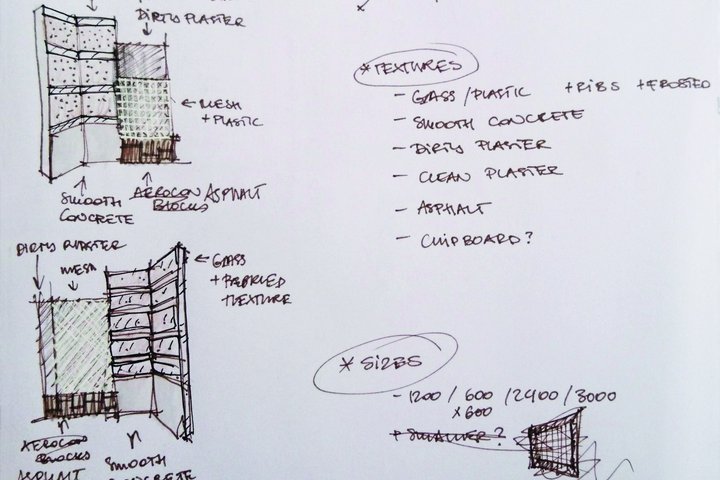 DIRTY PLASTER
← MESH
+ PLASTIC
SMOOTH
CONCRETE
AEROCON ASPHALT
BLOCKS
DIRTY PLASTER
MESH
← GLASS
+
TEXTURE
AEROCON
BLOCKS
ASPHALT
SMOOTH
CONCRETE
* TEXTURES
- GLASS/PLASTIC + RIBS + FROSTED
- SMOOTH CONCRETE
- DIRTY PLASTER
- CLEAN PLASTER
- ASPHALT
- CHIPBOARD?
* SIZES
- 1200 / 600 / 2400 / 3000
x 600
+ SMALLER?